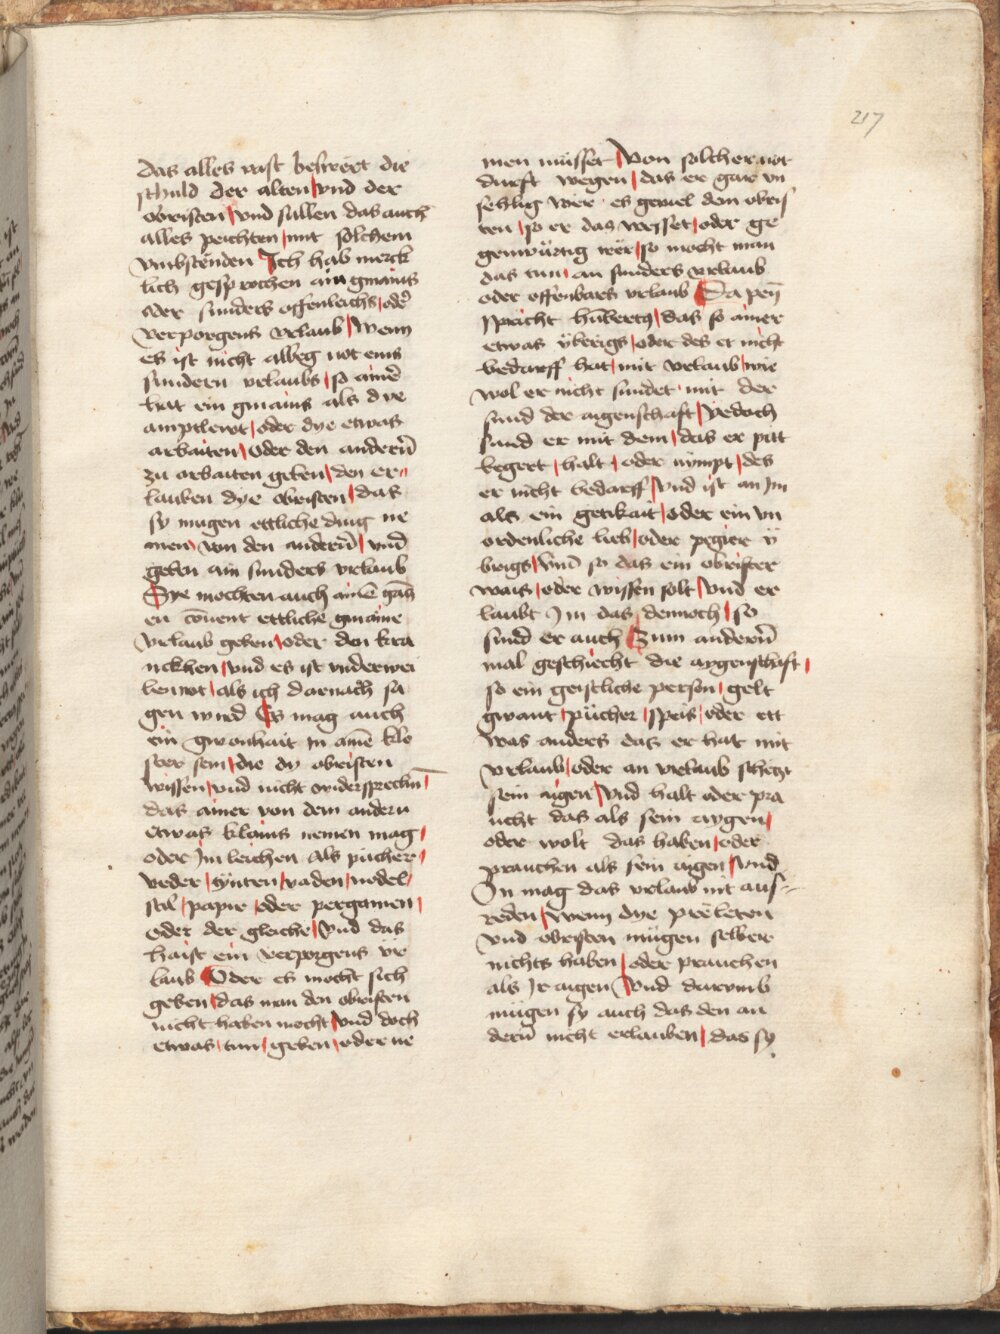 217
das alles vast beswert die
schuld der alten und der
obristen und sullen das auch
alles peichten mit solchem
vmbstenden Ich hab merck
lich gesprochen ain gmains
oder sunders offenleichs oder
verporgens vrlaub Wenn
es ist nicht albeg not eins
sundern vrlaubs so ainer
hat ein gmains als dye
amptlewt oder dye etwas
arbaiten oder den anderñ
zu arbaiten geben den er
lauben dye obristen das
sy mugen ettliche ding ne
men von den anderñ vnd
geben ain sunders vrlaub
Sye mochten auch ainē gācz
en cōuent ettliche gmaine
vrlaub geben oder den kra
nckhen vnd es ist vnderwei
len not als ich darnach sa
gen wird Es mag auch
ein gwonhait in ainē klo
ster sein die dy obristen
wissen vnd nicht widersprechn̄
das ainer von dem andern
etwas klains nemen mag
oder Im leichen als pücher
veder tynten vaden nodel
papir oder pergamen
oder der gleiche vnd das
haist ein verporgens vr
laub Oder es mocht sich
geben das man den obristen
nicht haben mocht vnd doch
etwas tun geben oder ne
men müsset Von solcher not
durft wegen das er gar vn
selhig wer es geuiel dem obris
ten so er das wesset oder ge
genwürtig wer so mocht man
das tun an sunders vrlaub
oder offenbars vrlaub Da pey
spricht hūbertꝰ das so ainer
etwas ybrigs oder des er nicht
bedarff hat mit vrlaub wie
wol er nicht sundet mit der
sund der aigenschaft yedoch
sund er mit dem das er pitt
begert halt oder nympt des
er nicht bedarff vnd ist an Im
als ein getikait oder ein vn
ordenliche lieb oder pegier y
brigs vnd so das ein obrister
wais oder wissen solt vnd er
laubt Im das dennoch so
sund er auch Zum anderñ
mal geschiecht die aygenschaft
so ein geistliche person gelt
gwant pücher speis oder ett
was anders das er hat mit
vrlaub oder an vrlaub scheczt
sein aigen vnd halt oder pra
ucht das als sein aygen
oder wolt das haben oder
prauchen als sein aigen vnd
In mag das vrlaub nit aus
reden Wenn dye preleten
vnd obristen mügen selber
nichts haben oder prauchen
als Ir aigen vnd darvmb
mügen sy auch das den an
derñ nicht erlauben das sy